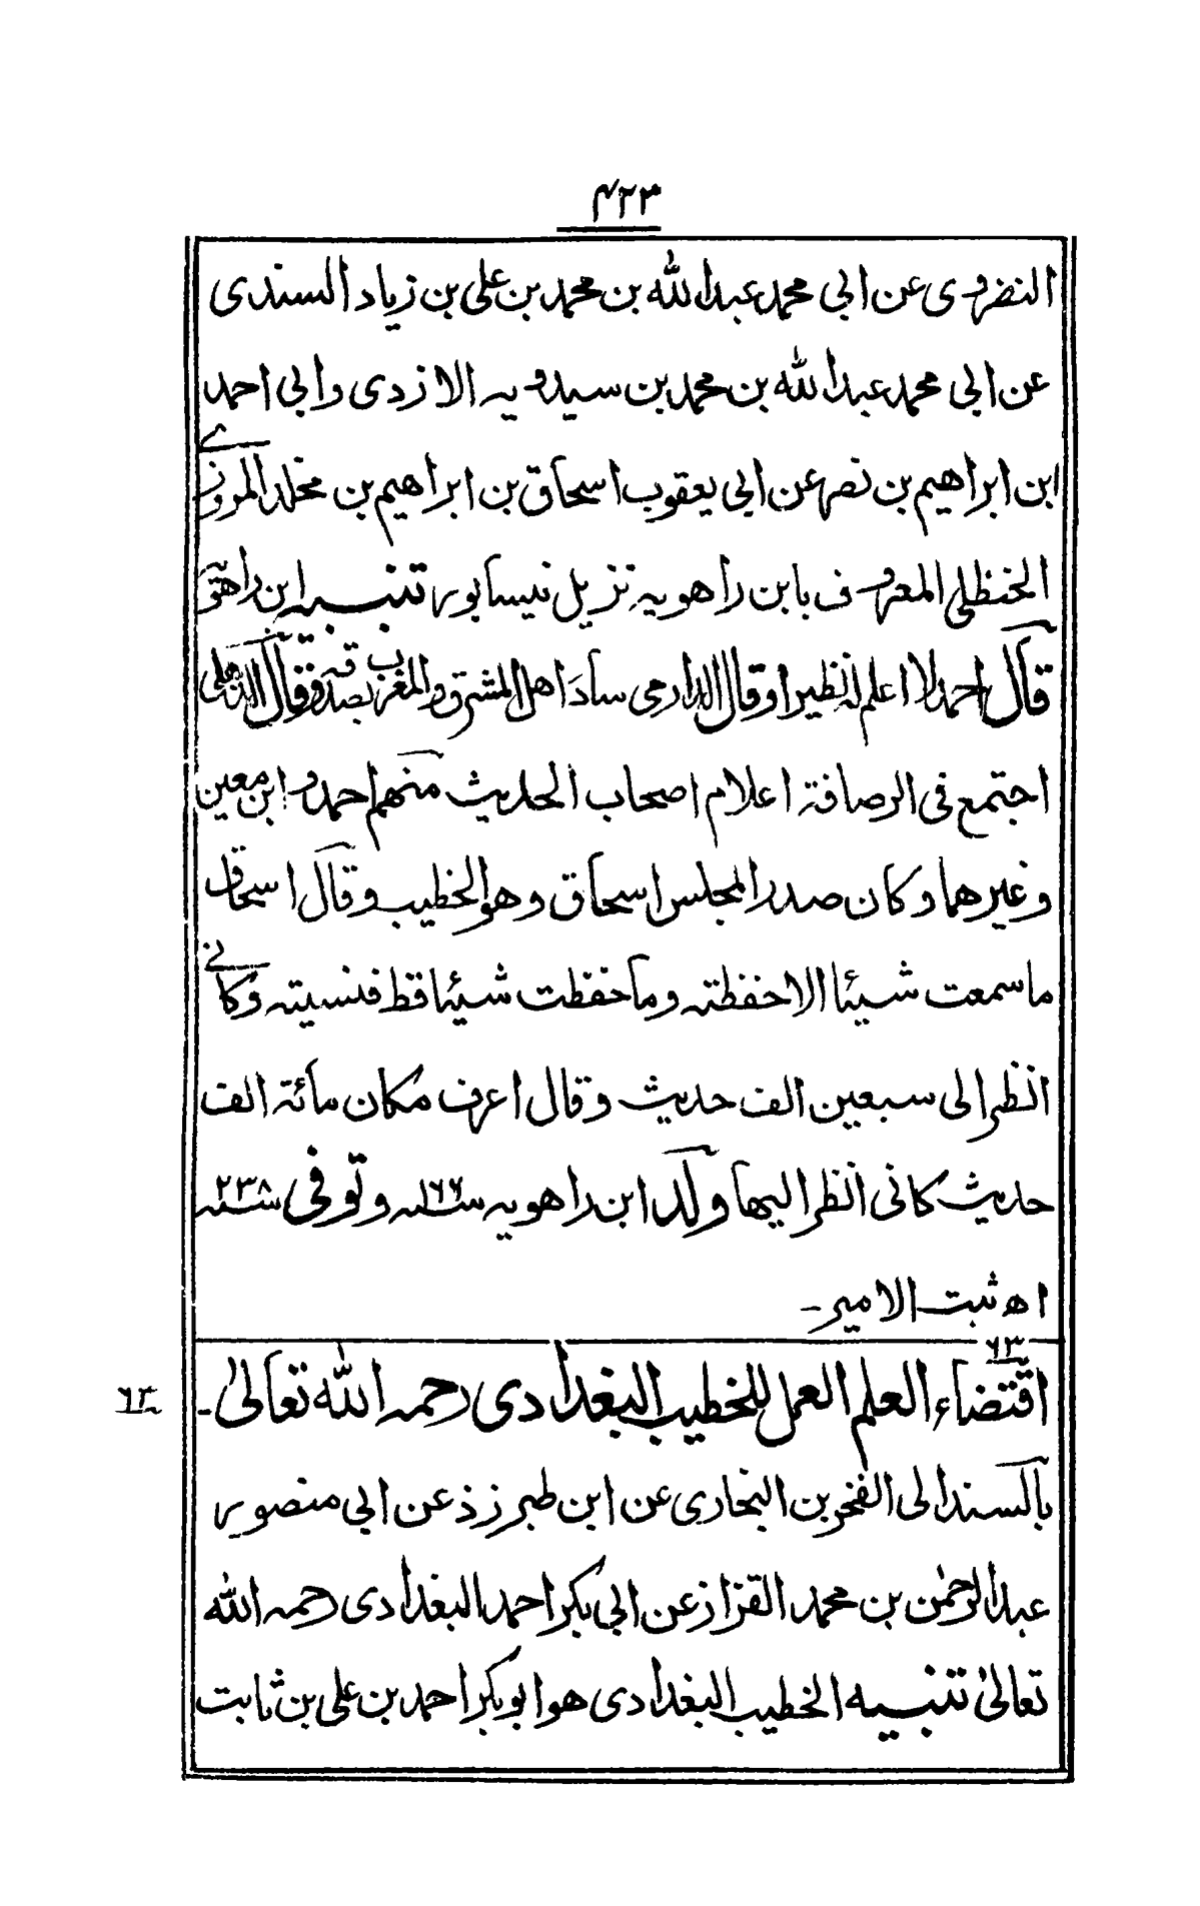 ۴۲۳
النضروى عن ابى محمد عبدالله بن محمد بن على بن زياد السندى
عن ابى محمد عبدالله بن محمد بن سيدويه الازدى وابى احمد
ابن ابراهيم بن نصر عن ابى يعقوب اسحاق بن ابراهيم بن مخلد المروزے
الحنظلى المعروف بابن راهويه نزيل نيسابور تنبيه ابن راهويه
قال احمد لا اعلم له نظيرا وقال الدارمى ساد اهل المشرق والمغرب بصدقه وقال الذهلى
اجتمع فى الرصافة اعلام اصحاب الحديث منهم احمد وابن معين
وغيرهما وكان صدر المجلس اسحاق وهو الخطيب وقال اسحاق
ما سمعت شيئا الا حفظته وما حفظت شيئا قط فنسيته وكانے
انظر الى سبعين الف حديث وقال اعرف مكان مائة الف
حديث كانى انظر اليها ولد ابن راهويه سنة ۱۶۶ وتوفى سنة ۲۳۸
اه ثبت الامير-
۶۳
اقتضاء العلم العمل للخطيب البغدادى رحمه الله تعالىٰ-
۶۳
بالسند الى الفخر بن البخارى عن ابن طبرزذ عن ابى منصور
عبدالرحمٰن بن محمد القزاز عن ابى بكر احمد البغدادى رحمه الله
تعالىٰ تنبيه الخطيب البغدادى هو ابوبكر احمد بن على بن ثابت